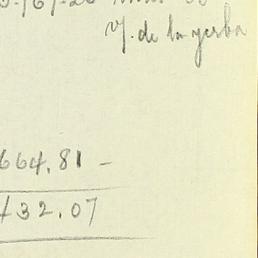 V. de la yerba
664.81 -
432.07